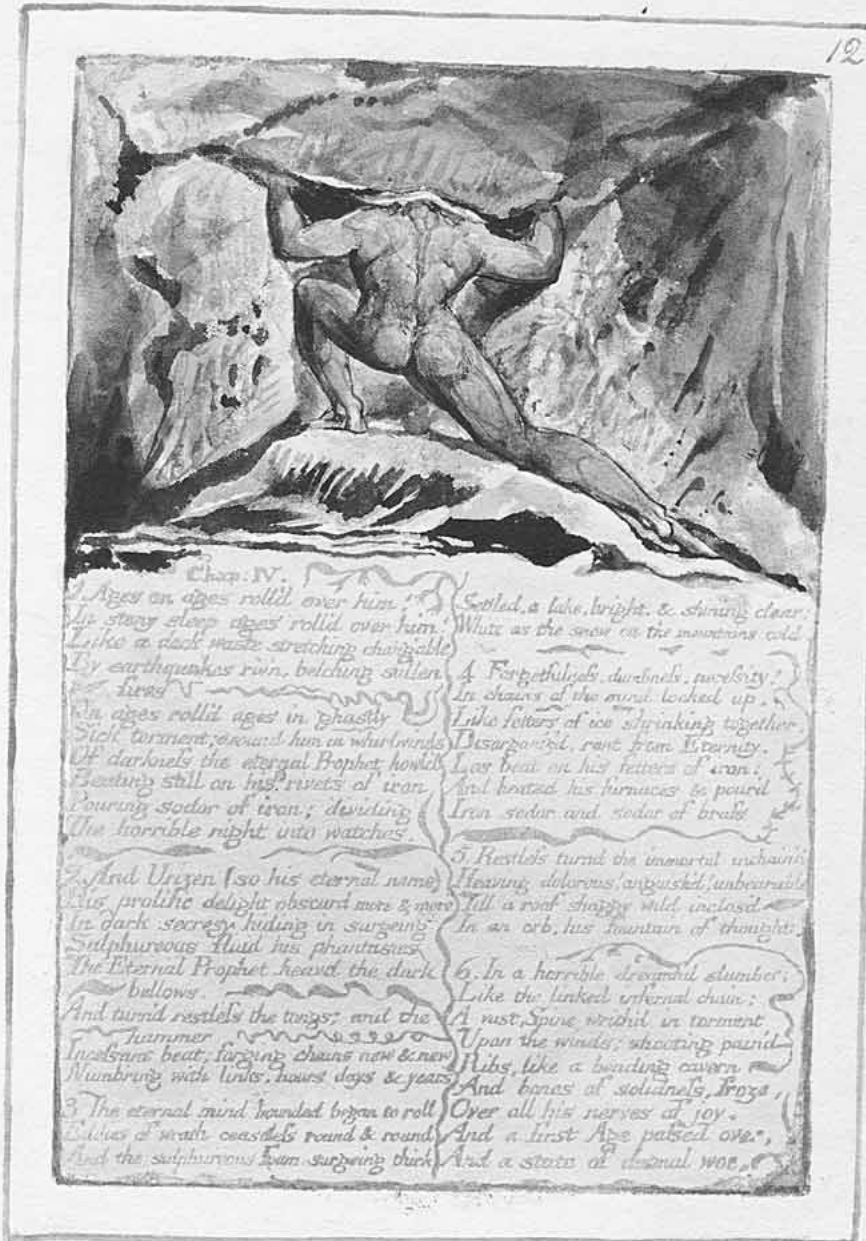 12
Chap: IV.
1. Ages on ages roll'd over him!
In stony sleep ages roll'd over him!
Like a dark waste stretching chang'able
By earthquakes riv'n, belching sullen
fires
On ages roll'd ages in ghastly
Sick torment; around him in whirlwinds
Of darkneſs the eternal Prophet howl'd
Beating still on his rivets of iron
Pouring sodor of iron; dividing
The horrible night into watches.
2. And Urizen (so his eternal name)
His prolific delight obscurd more & more
In dark secresy hiding in surgeing
Sulphureous fluid his phantasies.
The Eternal Prophet heavd the dark
bellows.
And turnd restleſs the tongs; and the
hammer
Inceſsant beat; forging chains new & new
Numb'ring with links, hours, days & years
3. The eternal mind bounded began to roll
Eddies of wrath ceaseleſs round & round,
And the sulphureous foam surgeing thick
Settled, a lake, bright, & shining clear:
White as the snow on the mountains cold.
4. Forgetfulneſs, dumbneſs, neceſsity!
In chains of the mind locked up,
Like fetters of ice shrinking together
Disorganiz'd, rent from Eternity.
Los beat on his fetters of iron;
And heated his furnaces & pour'd
Iron sodor and sodor of braſs
5. Restleſs turnd the immortal inchain'd
Heaving dolorous! anguish'd! unbearable
Till a roof shaggy wild inclos'd
In an orb, his fountain of thought.
6. In a horrible dreamful slumber;
Like the linked infernal chain;
A vast Spine writh'd in torment
Upon the winds; shooting pain'd
Ribs, like a bending cavern
And bones of solidneſs, froze
Over all his nerves of joy.
And a first Age paſsed over,
And a state of dismal woe.